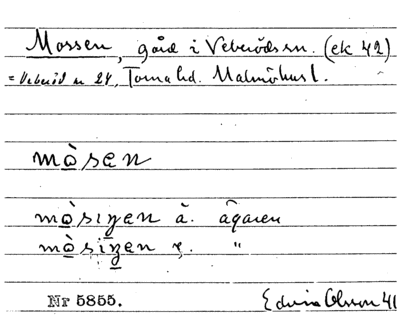 Mossen, gård i Veberöds sn. (ek 42)
= Veberöd nr 24, Torna hd. Malmöhus l.
mòsen
mòsiŋen ä. ägaren
mòsiŋen "
Nr 5855. Edvin Olsson 41